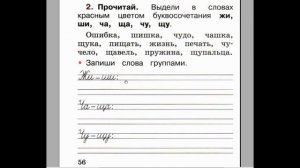 2. Прочитай. Выдели в словах
красным цветом буквосочетания жи,
ши, ча, ща, чу, щу.
Ошибка, шишка, чудо, чашка,
щука, пищать, жизнь, печать, чу-
чело, щавель, пружина, щупальца.
• Запиши слова группами.
Жи-ши:
Ча-ща:
Чу-щу:
56